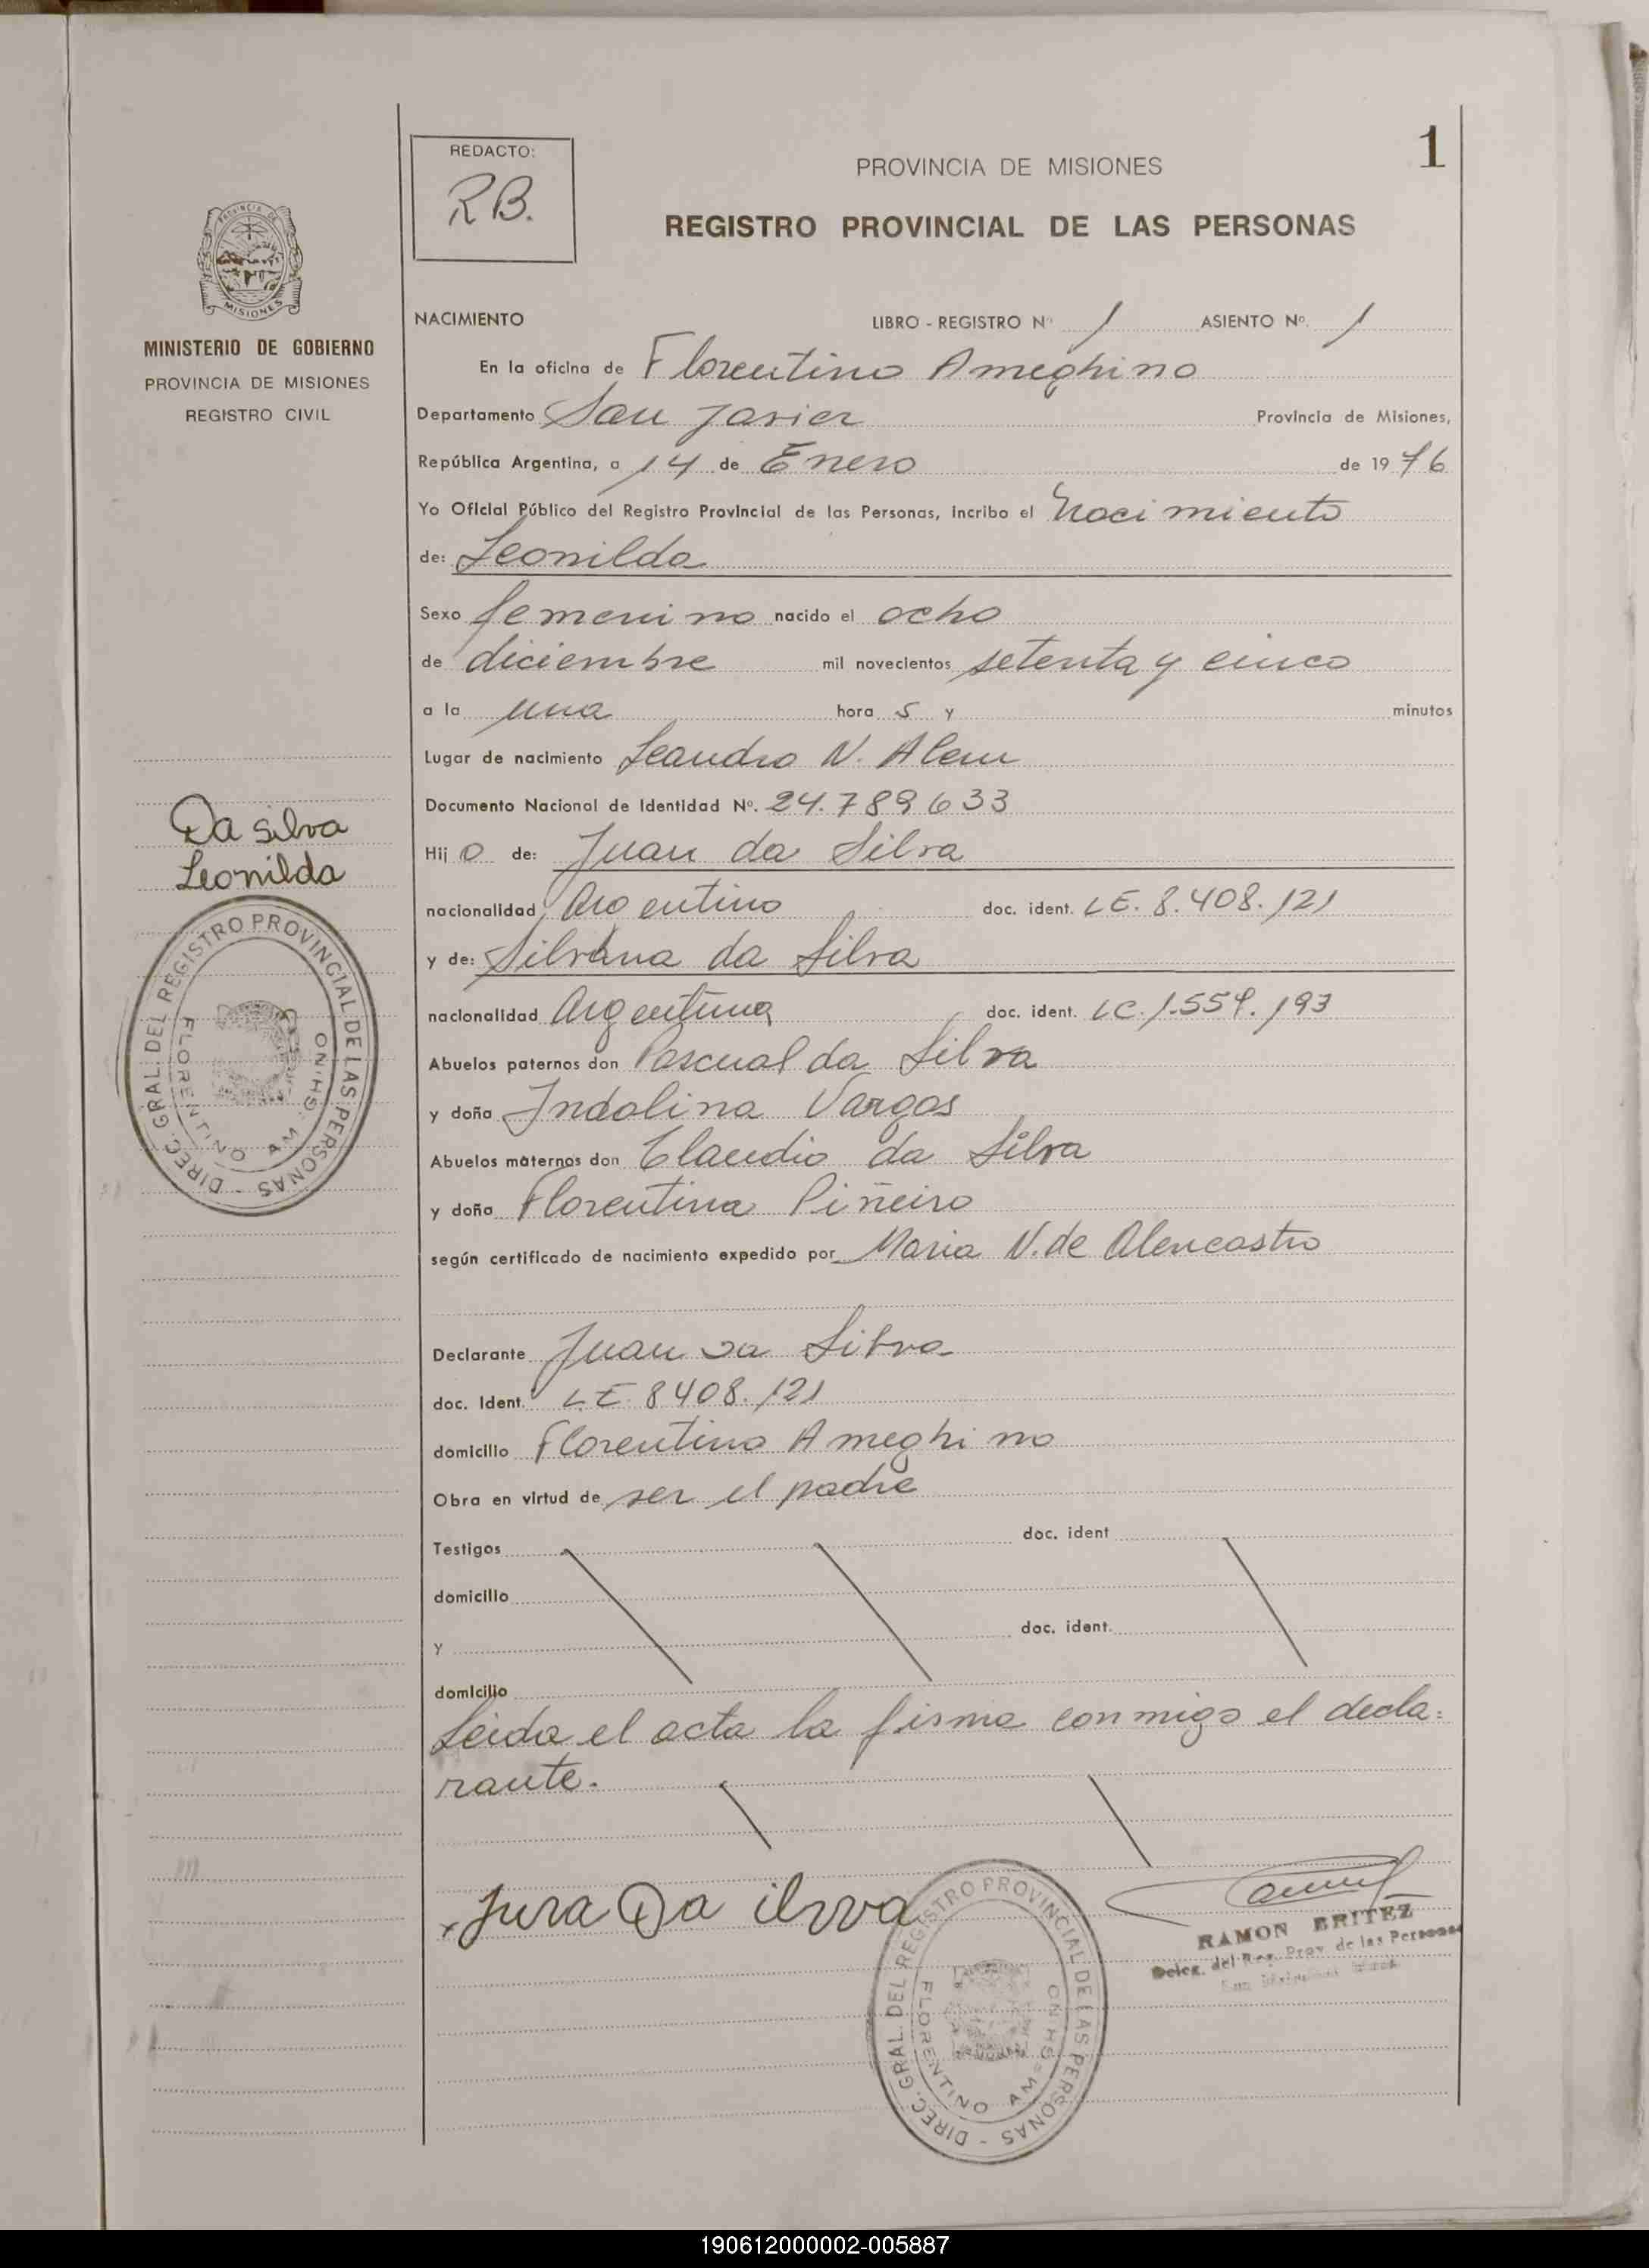 REDACTO:
RB.
1
PROVINCIA DE MISIONES
REGISTRO PROVINCIAL DE LAS PERSONAS
PROVINCIA DE
MISIONES
MINISTERIO DE GOBIERNO
PROVINCIA DE MISIONES
REGISTRO CIVIL
NACIMIENTO LIBRO - REGISTRO Nº 1 ASIENTO Nº. 1
En la oficina de Florentino Ameghino
Departamento San Javier Provincia de Misiones,
República Argentina, a 14 de Enero de 1976
Yo Oficial Público del Registro Provincial de las Personas, incribo el Nacimiento
de: Leonilda
Sexo femenino nacido el ocho
de diciembre mil novecientos setenta y cinco
a la una hora s y minutos
Lugar de nacimiento Leandro N. Alem
Documento Nacional de Identidad Nº. 24.789633
Da silva
Leonilda
Hij o de: Juan da Silva
nacionalidad Argentino doc. ident. LE. 8.408.121
y de: Silvana da Silva
nacionalidad Argentina doc. ident. LC. 1.559.193
Abuelos paternos don Pascual da Silva
y doña Indolina Vargas
Abuelos maternos don Claudio da Silva
y doña Florentina Piñeiro
según certificado de nacimiento expedido por Maria N. de Alencastro
DIREC. GRAL. DEL REGISTRO PROVINCIAL DE LAS PERSONAS -
FLORENTINO AMEGHINO
Declarante Juan da Silva
doc. Ident. L.E. 8408.121
domicilio Florentino Ameghino
Obra en virtud de ser el padre
Testigos doc. ident
domicilio
y doc. ident.
domicilio
Leida el acta la firma conmigo el decla=
rante.
Jura Da ilvva
RAMON BRITEZ
Deleg. del Reg. Prov. de las Personas
DIREC. GRAL. DEL REGISTRO PROVINCIAL DE LAS PERSONAS -
FLORENTINO AMEGHINO
190612000002-005887